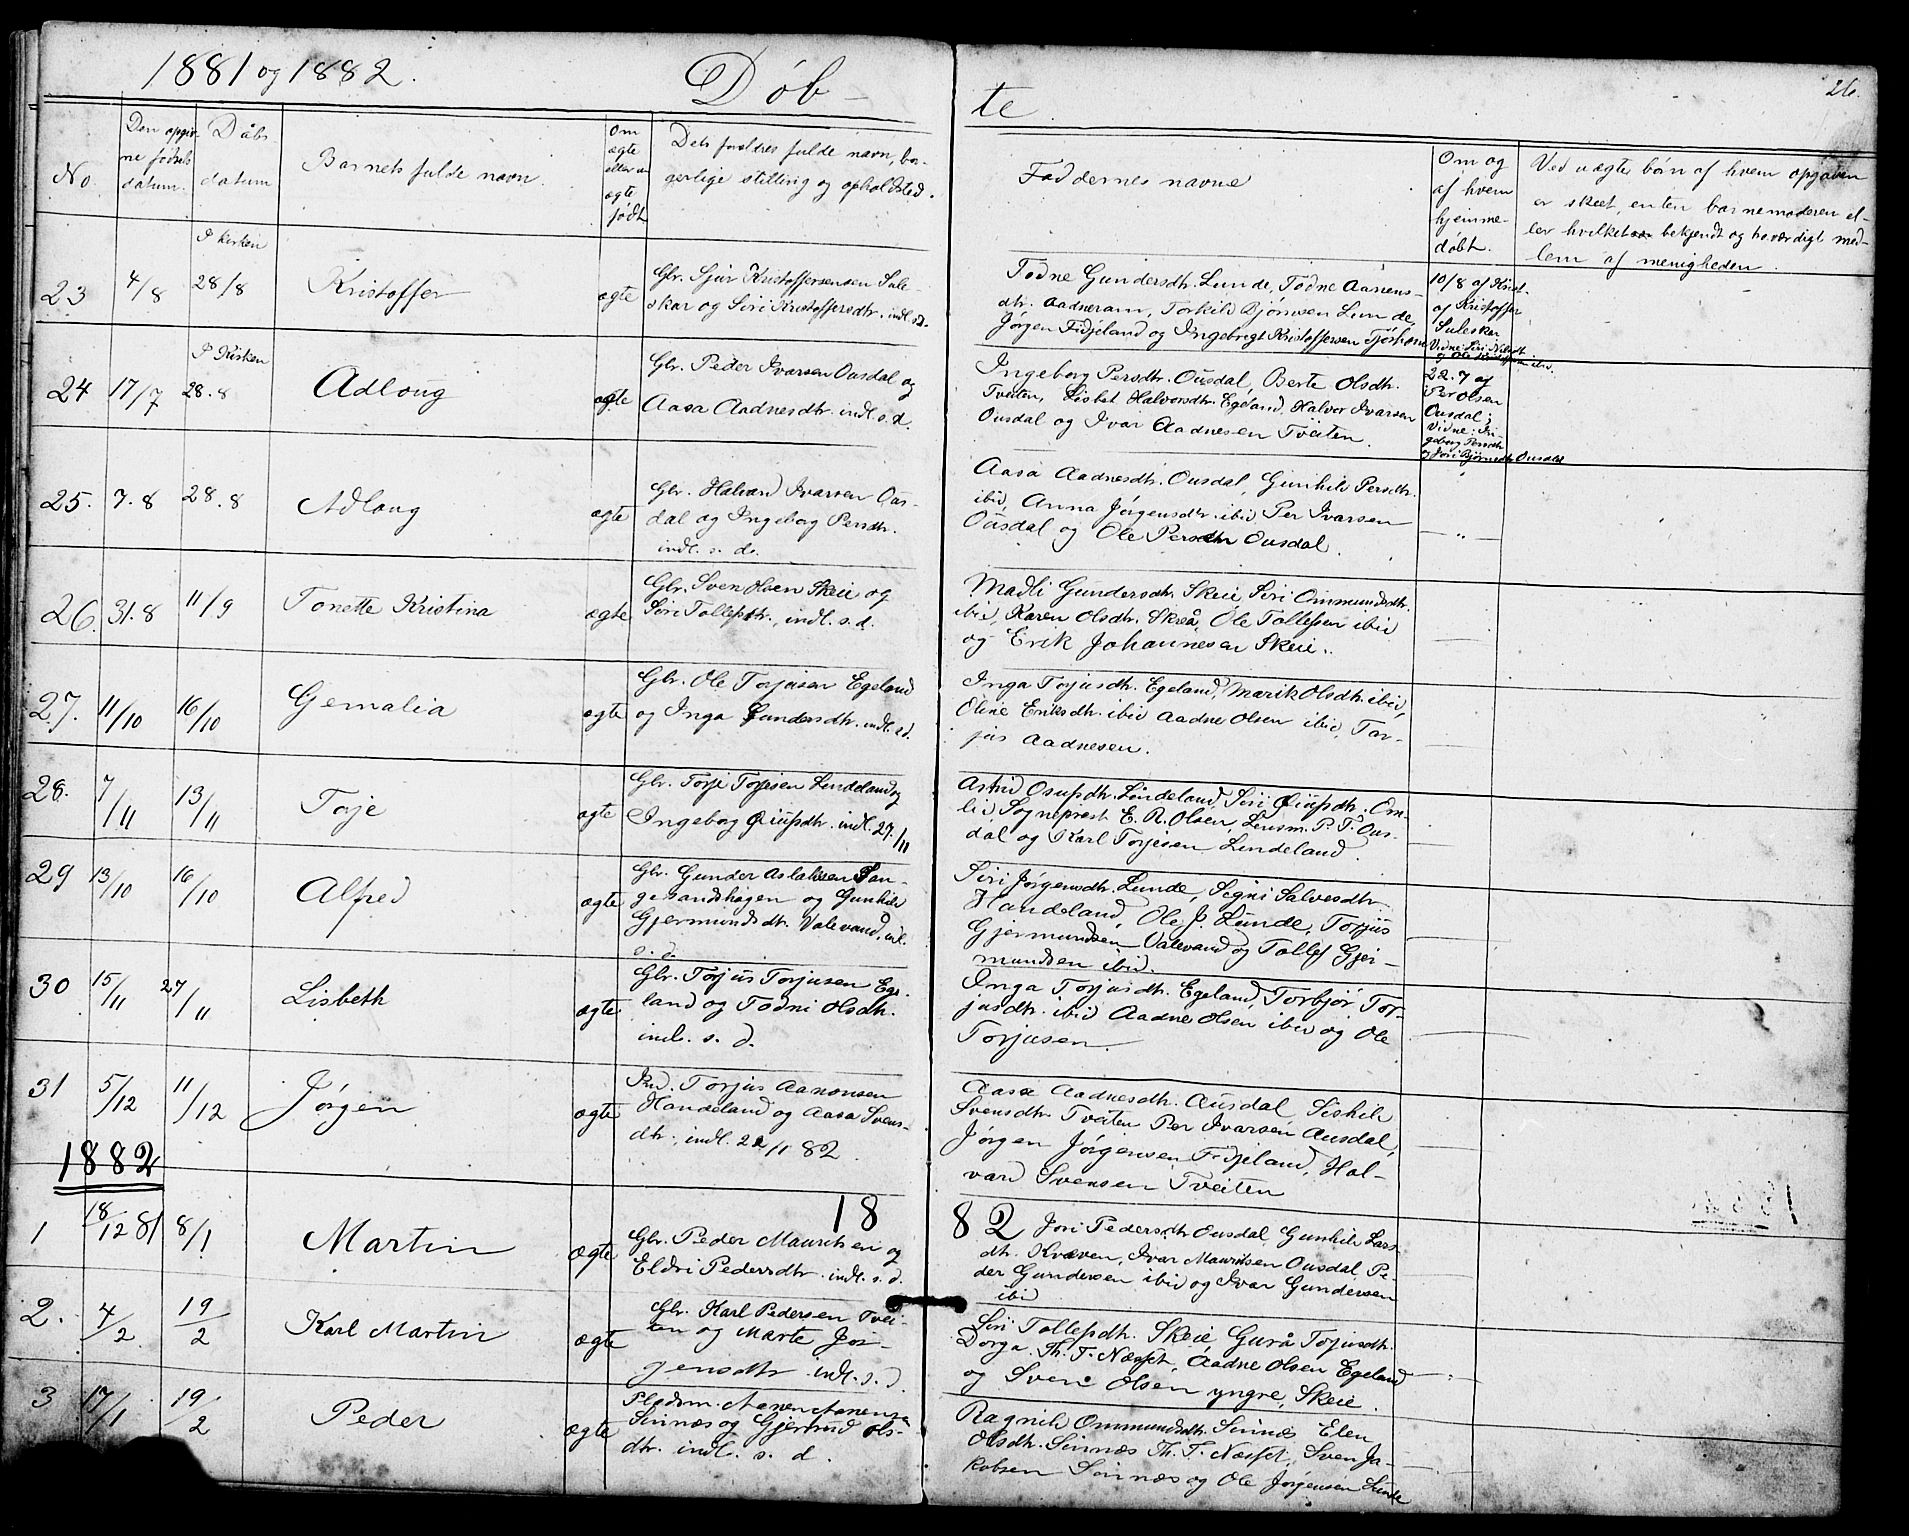 1881 og 1882.
Døb-
te.
26.
No.
Den opgiv-
ne fødsels
datum.
Dåbs-
datum
Barnets fulde navn.
Om
ægte
eller u-
ægte
født
Dets foreldres fulde navn, bor-
gerlige stilling og opholdsted.
Faddernes navne
Om og
af hvem
hjemme-
døbt.
Ved uægte børn af hvem opgaven
er skeet, enten barnemoderen el-
ler hvilket bekjendt og troværdigt med-
lem af menigheden.
23
4/8
I kirken
28/8
Kristoffer
ægte
Gbr. Sjur Kristoffersensen Sule-
skar og Siri Kristoffersdtr. indl. s.d.
Todne Gundersdtr. Lunde, Todne Aanens-
dtr. Aadneram, Torkild Bjørnsen Lunde,
Jørgen Fidjeland og Ingebregt Kristoffersen Tjørhom
10/8 af
af Kristoffer
Suleskar
Vidne: Siri
og Ole Kristoffersen ibid.
24
17/7
I Kirken
28.8
Adloug
ægte
Gbr. Peder Ivarsen Ousdal og
Aasa Aadnesdtr. indl. s.d.
Ingeborg Persdtr. Ousdal, Berte Olsdtr.
Tveiten, Lisbet Halvorsdtr. Egeland, Halvor Ivarsen
Ousdal og Ivar Aadnesen Tveiten.
22.7 af
Per Olsen
Ousdal;
Vidne: In-
geborg Persdtr.
og Jori Bjørnsdtr. Ousdal
25.
7.8
28.8
Adloug
ægte
Gbr. Halvard Ivarsen Ous-
dal og Ingeborg Persdtr.
indl. s. d.
Aasa Aadnesdtr. Ousdal, Gunhild Persdtr.
ibid, Anna Jørgensdtr. ibid, Per Ivarsen
Ousdal og Ole Ousdal.
— „ —
26.
31.8
11/9
Tonette Kristina
ægte
Gbr. Sven Olsen Skeie og
Siri Tollefsdtr., indl. s.d.
Madli Gundersdtr. Skeie, Siri Ommundsdtr.
ibid, Karen Olsdtr. Skreå, Ole Tollefsen ibid
og Erik Johannesen Skeie.
27.
11/10
16/10
Gemalia
ægte
Gbr. Ole Torjusen Egeland
og Inga Gundersdtr. indl. s.d.
Inga Torjusdtr. Egeland, Marik Olsdtr. ibid,
Oline Eriksdtr. ibid Aadne Olsen ibid, Tor-
jus Aadnesen.
28.
7/11
13/11
Torje
ægte
Gbr. Torje Torjesen Lindeland og
Ingeborg indl. 27./11
Astrid Osufsdtr. Lindeland, Siri Om-
lid Sogneprest E. A. Olsen, Lensm. P. T. Ous-
dal og Karl Torjesen Lindeland.
29
13/10
16/10
Alfred
ægte
Gbr. Gunder Aslaksen Lan-
gesandshagen og Gunhild
Gjermundsdtr. Valevand, indl.
s. d.
Siri Jørgensdtr. Lunde, Segni Salvesdtr.
Handeland, Ole J. Lunde, Torjus
Gjermundsen Valevand og Tollef Gjer-
mundsen ibid.
30
15/11
27/11
Lisbeth
ægte
Gbr. Torjus Torjusen Ege-
land og Todni Olsdtr.
indl. s. d.
Inga Torjusdtr. Egeland, Torbjør Tor-
jusdtr. ibid Aadne Olsen ibid og Ole
Torjusen.
31
5/12
11/12
Jørgen
ægte
Ind. Torjus Aanonsen
Handeland og Aasa Svens-
dtr., indl. 22/1 82.
Aasa Aadnesdtr. Ausdal, Siskild
Svensdtr. Tveiten Per Ivarsen Ausdal,
Jørgen Jørgensen Fidjeland, Hal-
vard Svensen Tveiten
1882
18
82
1
18/12 81
8/1
Martin
ægte
Gbr. Peder Mauritsen og
Eldri Pedersdtr. indl. s. d.
Jori Pedersdtr. Ousdal, Gunhild Lars-
dtr. Kvæven, Ivar Mauritsen Ousdal, Pe-
der Gundersen ibid og Ivar Gundersen
ibid
2.
4/2
19/2
Karl Martin
ægte
Gbr. Karl Pedersen Tvei-
ten og Marte Jør-
gensdtr. indl. s. d.
Siri Tollefsdtr. Skeie, Gurå Torjusdtr.
Dorga. Th. T. Næsset, Aadne Olsen Egeland
og Sven Olsen yngre, Skeie.
3
17/1
19/2
Peder
ægte
Pladsm. Aanen Aanensen
Sinnæs og Gjertrud Ols-
dtr. indl. s. d.
Ragnild Ommundsdtr. Sinnæs Elen
Olsdtr. Sinnæs Th. T. Næsset, Sven Ja-
kobsen Sinnæs og Ole Jørgensen Lunde